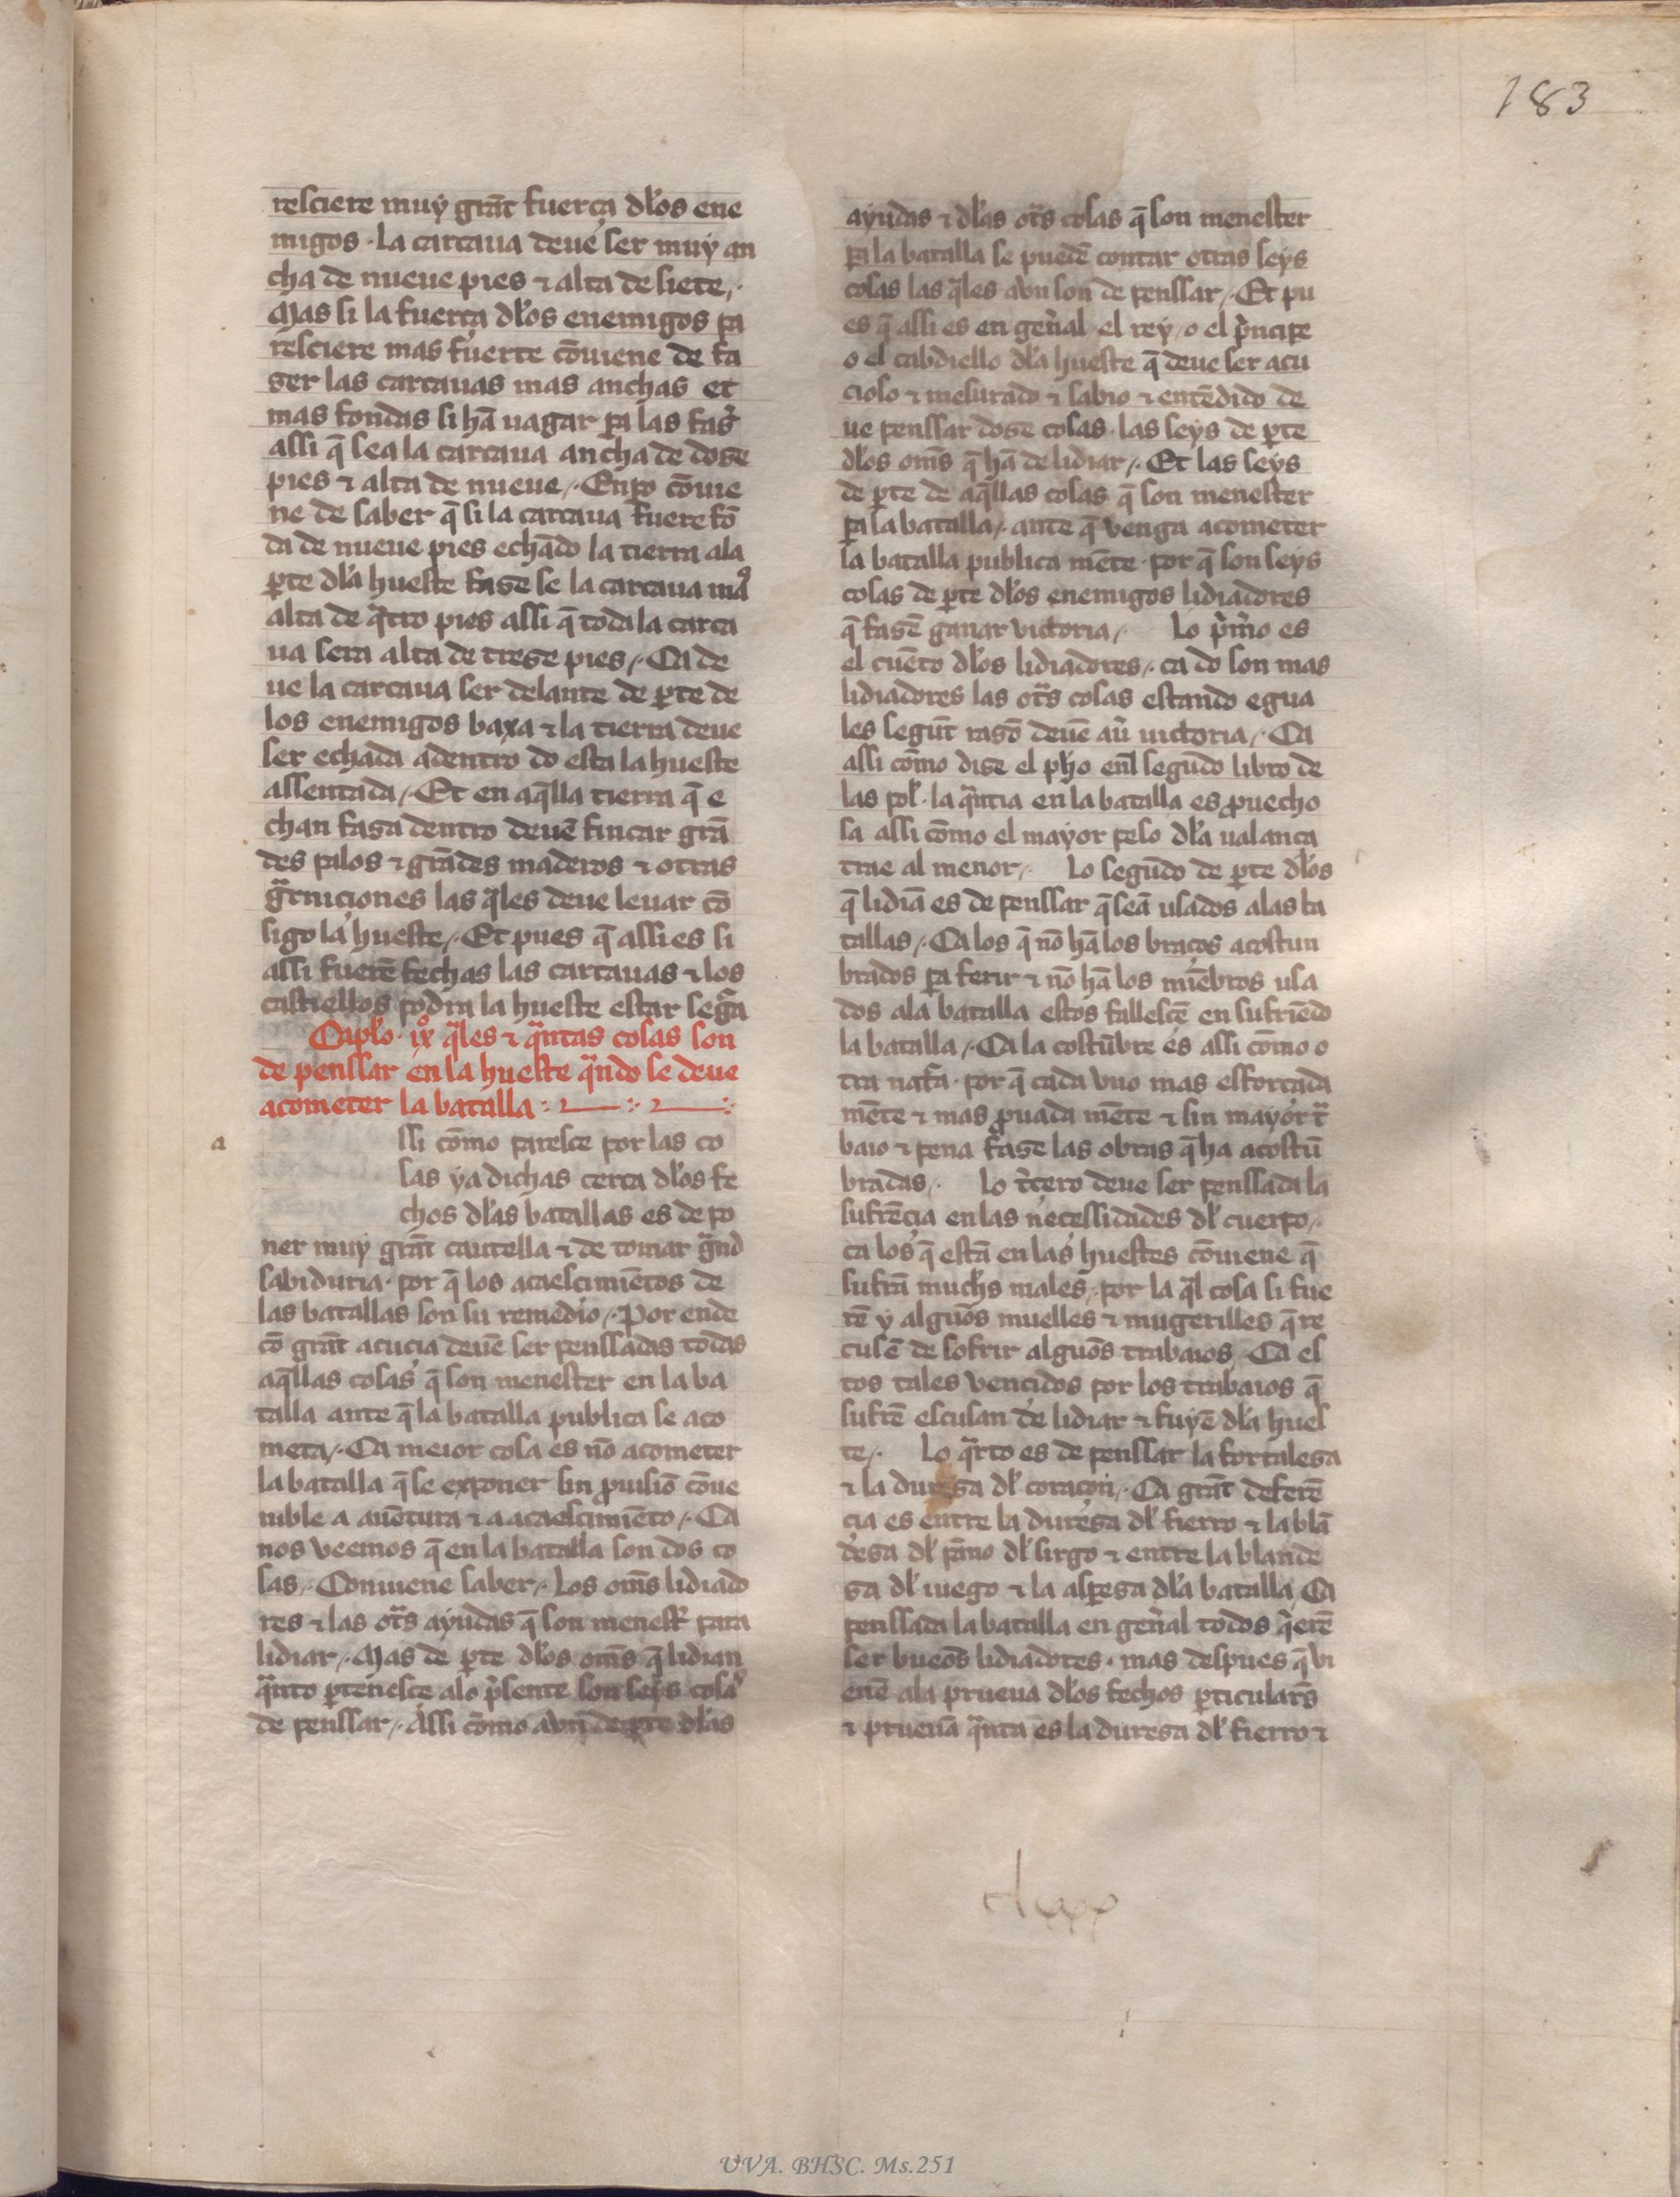 183
resciere muy grãt fuerça dl̃os ene
migos · la carcaua deue ser muy an
cha de nueue pies ⁊ alta de siete /·
Mas si la fuerça dl̃os enemigos pa
resciere mas fuerte cõuiene de fa
zer las carcauas mas anchas et
mas fondas si hã uagar pa las fas̃
assi q̃ sea la carcaua ancha de doze
pies ⁊ alta de nueue /· Enpo cõuie
ne de saber q̃ si la carcaua fuere fõ
da de nueue pies echãdo la tierra ala
p̱te dl̃a hueste faze se la carcaua mas
alta de q̃tro pies assi q̃ toda la carca
ua sera alta de treze pies /· Ca de
ue la carcaua ser delante de p̱te de
los enemigos baxa ⁊ la tierra deue
ser echada adentro do esta la hueste
assentada /· Et en aq̃lla tierra q̃ e
chan faza dentro deuẽ fincar grã
des palos ⁊ grãdes maderos ⁊ otras
g̃rniciones las q̃les deue leuar cõ
sigo la hueste /· Et pues q̃ assi es si
assi fuerẽ fechas las carcauas ⁊ los
castiellos podra la hueste estar seg̃a
Caplõ · ix q̃les ⁊ q̃ntas cosas son
de penssar en la hueste q̃ndo se deue
acometer la batalla
a
ssi cõmo paresce por las co
sas ya dichas cerca dl̃os fe
chos dl̃as batallas es de po
ner muy grãt cautella ⁊ de tomar g̃nd
sabiduria · por q̃ los acaescimiẽtos de
las batallas son su remedio /· Por ende
cõ grãt acucia deuẽ ser penssadas todas
aq̃llas cosas q̃ son menester en la ba
talla ante q̃ la batalla publica se aco
meta /· Ca meior cosa es nõ acometer
la batalla q̃ se exponer sin p̃uisiõ cõue
nible a auẽtura ⁊ a acaescimiẽto /· Ca
nos veemos q̃ en la batalla son dos co
sas /· Conuiene saber /· los om̃s lidiado
res ⁊ las ot̃s ayudas q̃ son menest̃ para
lidiar /· Mas de p̱te dl̃os om̃s q̃ lidian
q̃nto p̱tenesce alo p̃sente son seys cosas
de penssar /· Assi cõmo avn de p̱te dl̃as
ayudas ⁊ dl̃as ot̃s cosas q̃ son menester
pa la batalla se puedẽ contar otras seys
cosas las q̃les avn son de penssar /· Et pu
es q̃ assi es en geñal el rey / o el p̃ncipe
o el cabdiello dl̃a hueste q̃ deue ser acu
cioso ⁊ mesurado ⁊ sabio ⁊ entẽdido de
ue penssar doze cosas · las seys de p̱te
dl̃os om̃s q̃ hã de lidiar /· Et las seys
de p̱te de aq̃llas cosas q̃ son menester
pa la batalla /· ante q̃ venga acometer
la batalla publica mẽte · por q̃ son seys
cosas de p̱te dl̃os enemigos lidiadores
q̃ fazẽ ganar victoria /· Lo p̃mo es
el cuẽto dl̃os lidiadores /· ca do son mas
lidiadores las ot̃s cosas estando egua
les segũt razõ deuẽ aũ victoria /· Ca
assi cõmo dize el ph̃o enl̃ segũdo libro de
las pol̃ · la q̃ntia en la batalla es p̃uecho
sa assi cõmo el mayor peso dl̃a ualança
trae al menor /· Lo segũdo de p̱te dl̃os
q̃ lidiã es de penssar q̃ seã usados alas ba
tallas /· Ca los q̃ nõ hã los braços acostun
brados pa ferir ⁊ nõ hã los miẽbros usa
dos ala batalla estos fallescẽ en sufriẽdo
la batalla /· Ca la costũbre es assi cõmo o
tra nat̃a · por q̃ cada vno mas esforçada
mẽte ⁊ mas p̃uada mẽte ⁊ sin mayor t̃
baio ⁊ pena faze las obras q̃ ha acostũ
bradas /· Lo t̃cero deue ser penssada la
sufrẽcia en las necessidades dl̃ cuerpo /·
ca los q̃ estã en las huestes cõuiene q̃
sufrã much̃s males /· por la q̃l cosa si fue
rẽ y algũos muelles ⁊ mugeriles q̃ re
cusẽ de sofrir algũos trabaios /· Ca es
tos tales vencidos por los trabaios q̃
sufrẽ escusan de lidiar ⁊ fuyẽ dl̃a hues
te /· Lo q̃rto es de penssar la fortaleza
⁊ la dureza dl̃ coraçon /· Ca grãt deferẽ
cia es entre la dureza dl̃ fierro ⁊ la blã
deza dl̃ pãno dl̃ sirgo ⁊ entre la blande
za dl̃ iuego ⁊ la aspeza dl̃a batalla Ca
penssada la batalla en geñal todos q̃erẽ
ser bueõs lidiadores · mas despues q̃ vi
enẽ ala prueua dl̃os fechos p̱ticulares
⁊ prueuã q̃nta es la dureza dl̃ fierro ⁊
UVA. BHSC. Ms.251